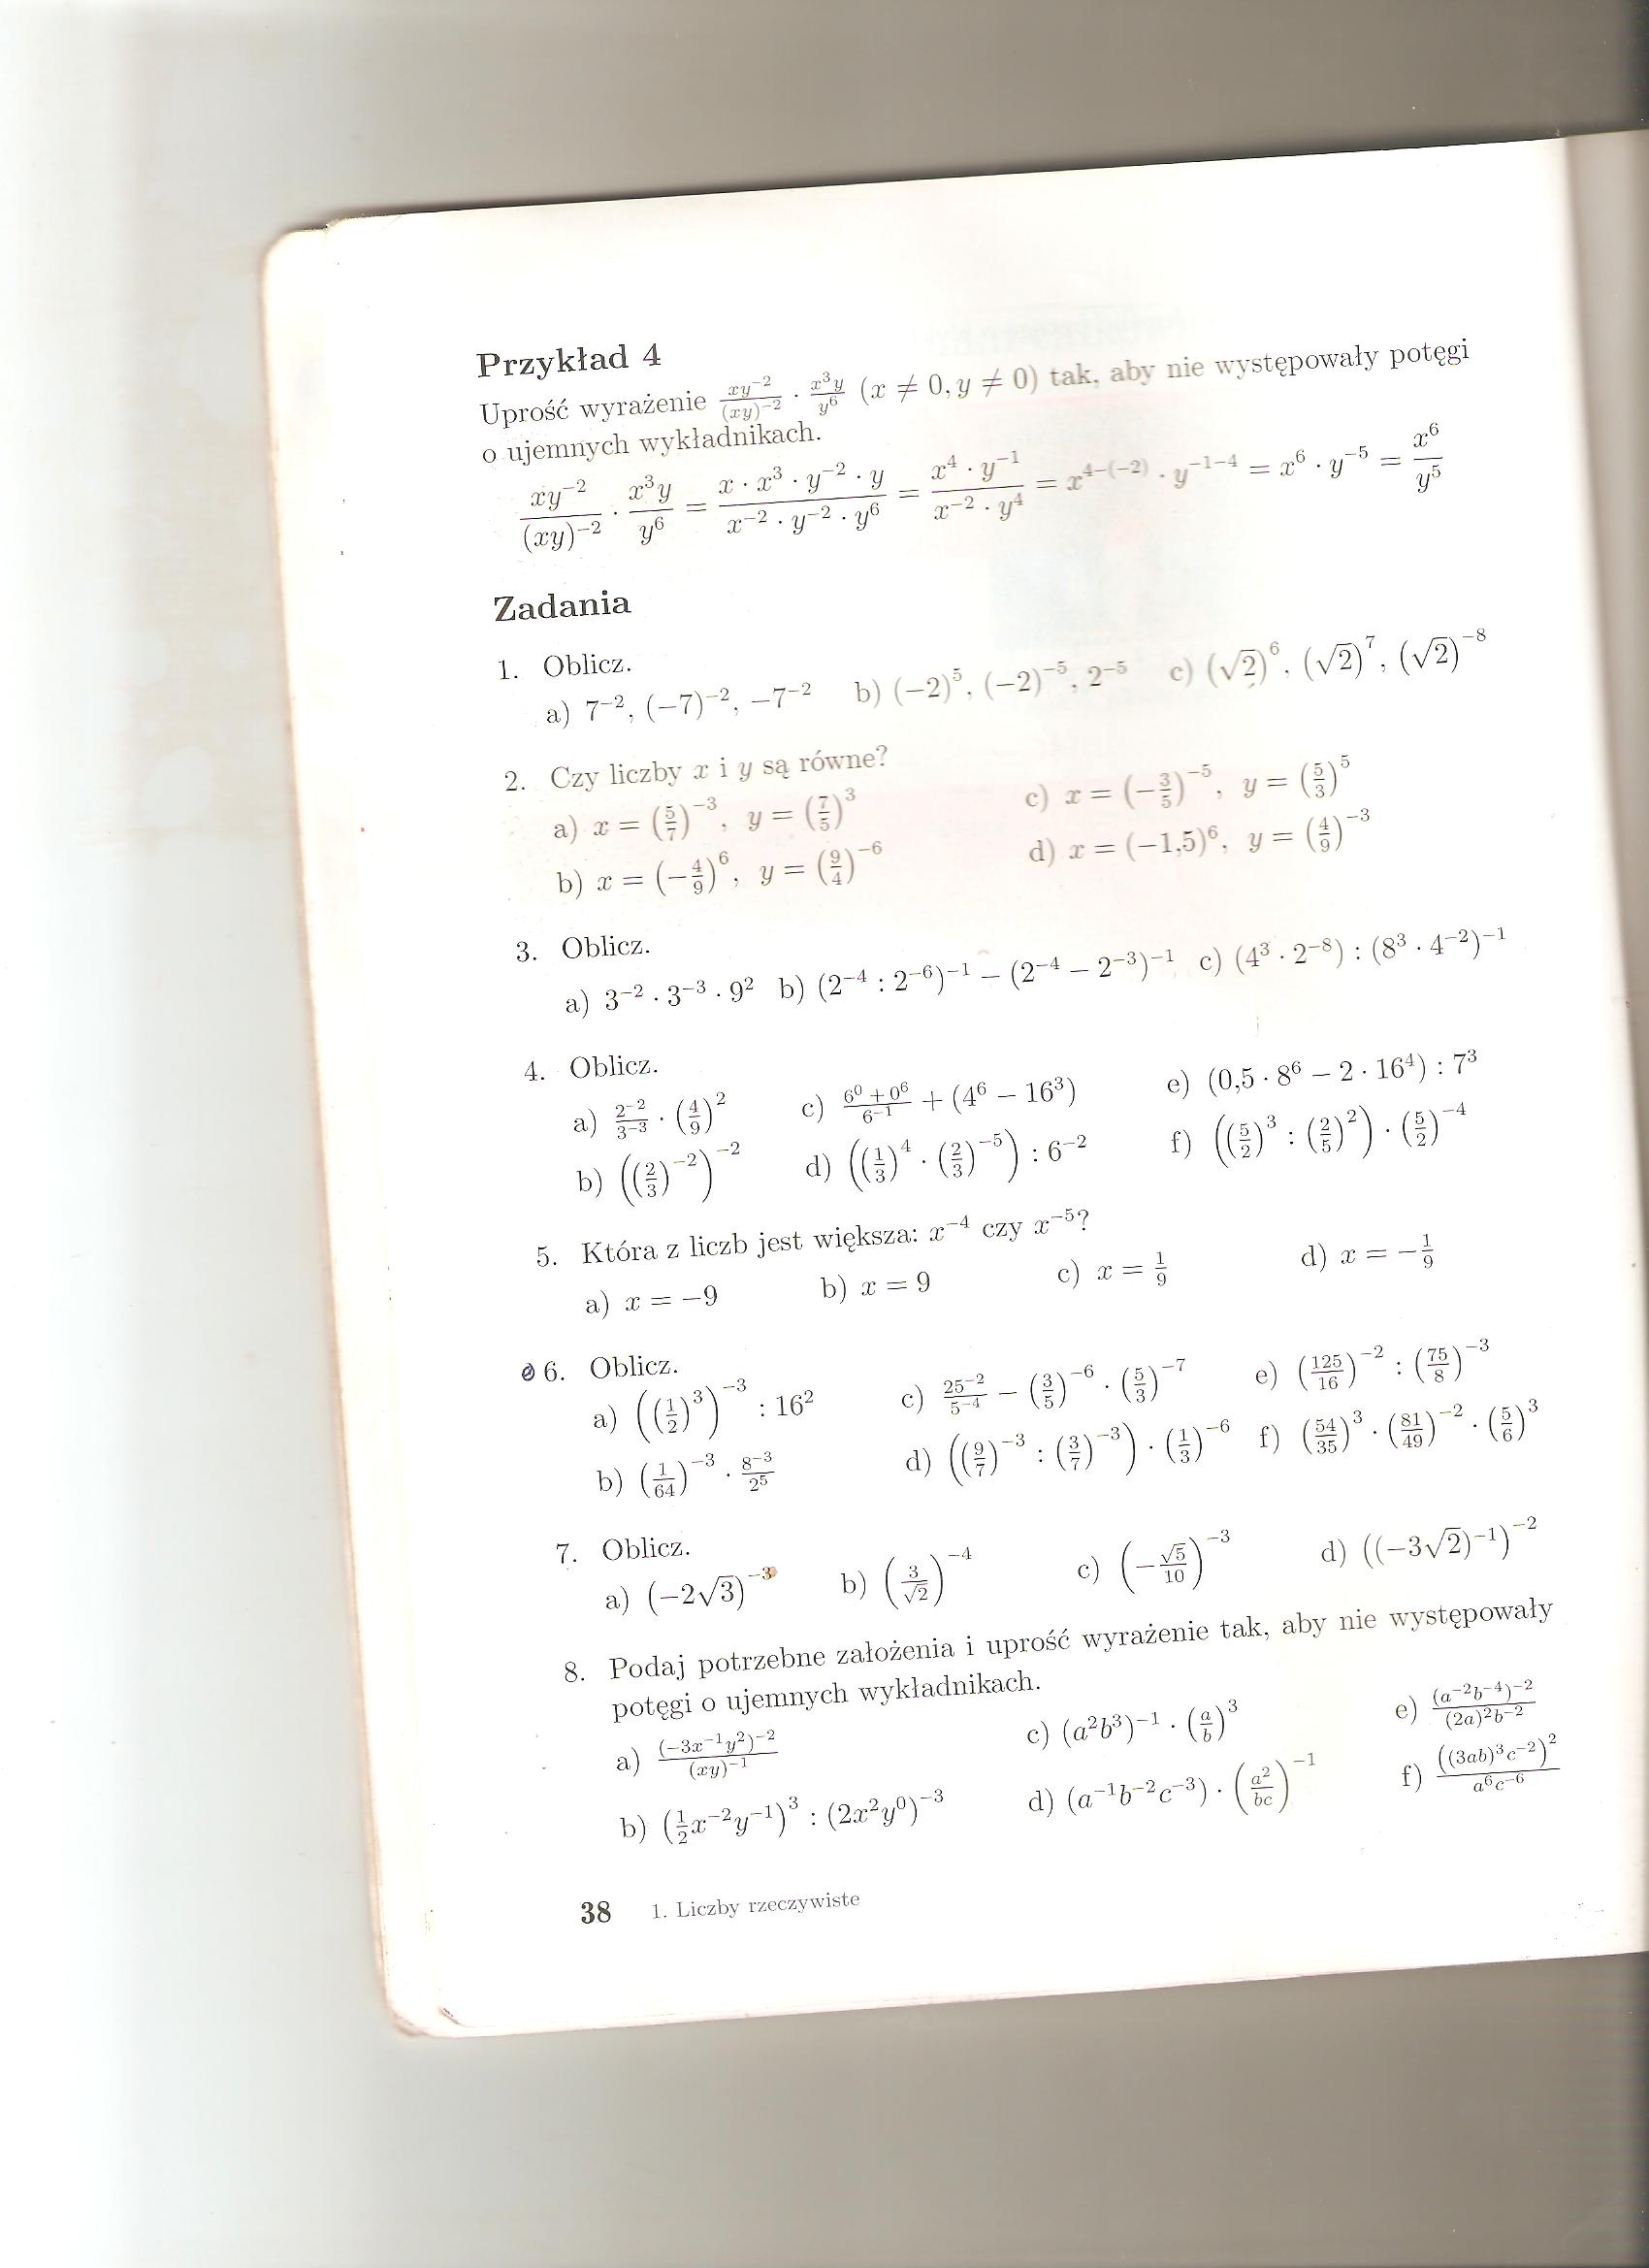 Przykład 4
Uprość wyrażenie $\frac{xy^{-2}}{(xy)^{-2}} \cdot \frac{x^3y}{y^6}$ $(x \neq 0, y \neq 0)$ tak, aby nie występowały potęgi
o ujemnych wykładnikach.
$\frac{xy^{-2}}{(xy)^{-2}} \cdot \frac{x^3y}{y^6} = \frac{x \cdot x^3 \cdot y^{-2} \cdot y}{x^{-2} \cdot y^{-2} \cdot y^6} = \frac{x^4 \cdot y^{-1}}{x^{-2} \cdot y^4} = x^{4-(-2)} \cdot y^{-1-4} = x^6 \cdot y^{-5} = \frac{x^6}{y^5}$
Zadania
1. Oblicz.
a) $7^{-2}, (-7)^{-2}, -7^{-2}$ b) $(-2)^5, (-2)^{-5}, 2^{-5}$ c) $(\sqrt{2})^6, (\sqrt{2})^7, (\sqrt{2})^{-8}$
2. Czy liczby $x$ i $y$ są równe?
a) $x = (\frac{5}{7})^{-3}, y = (\frac{7}{5})^3$ c) $x = (-\frac{3}{5})^{-5}, y = (\frac{5}{3})^5$
b) $x = (-\frac{4}{9})^6, y = (\frac{9}{4})^{-6}$ d) $x = (-1,5)^6, y = (\frac{4}{9})^{-3}$
3. Oblicz.
a) $3^{-2} \cdot 3^{-3} \cdot 9^2$ b) $(2^{-4} : 2^{-6})^{-1} - (2^{-4} - 2^{-3})^{-1}$ c) $(4^3 \cdot 2^{-8}) : (8^3 \cdot 4^{-2})^{-1}$
4. Oblicz.
a) $\frac{2^{-2}}{3^{-3}} \cdot (\frac{4}{9})^2$ c) $\frac{6^0 + 0^6}{6^{-1}} + (4^6 - 16^3)$ e) $(0,5 \cdot 8^6 - 2 \cdot 16^4) : 7^3$
b) $((\frac{2}{3})^{-2})^{-2}$ d) $((\frac{1}{3})^4 \cdot (\frac{2}{3})^{-5}) : 6^{-2}$ f) $((\frac{5}{2})^3 : (\frac{2}{5})^2) \cdot (\frac{5}{2})^{-4}$
5. Która z liczb jest większa: $x^{-4}$ czy $x^{-5}$?
a) $x = -9$ b) $x = 9$ c) $x = \frac{1}{9}$ d) $x = -\frac{1}{9}$
6. Oblicz.
a) $((\frac{1}{2})^3)^{-3} : 16^2$ c) $\frac{25^{-2}}{5^{-4}} - (\frac{3}{5})^{-6} \cdot (\frac{5}{3})^{-7}$ e) $(\frac{125}{16})^{-2} : (\frac{75}{8})^{-3}$
b) $(\frac{1}{64})^{-3} \cdot \frac{8^{-3}}{2^5}$ d) $((\frac{9}{7})^{-3} : (\frac{3}{7})^{-3}) \cdot (\frac{1}{3})^{-6}$ f) $(\frac{54}{35})^3 \cdot (\frac{81}{49})^{-2} \cdot (\frac{5}{6})^3$
7. Oblicz.
a) $(-2\sqrt{3})^{-3}$ b) $(\frac{3}{\sqrt{2}})^{-4}$ c) $(-\frac{\sqrt{5}}{10})^{-3}$ d) $((-3\sqrt{2})^{-1})^{-2}$
8. Podaj potrzebne założenia i uprość wyrażenie tak, aby nie występowały
potęgi o ujemnych wykładnikach.
a) $\frac{(-3x^{-1}y^2)^{-2}}{(xy)^{-1}}$ c) $(a^2b^3)^{-1} \cdot (\frac{a}{b})^3$ e) $\frac{(a^{-2}b^{-4})^{-2}}{(2a)^2b^{-2}}$
b) $(\frac{1}{2}x^{-2}y^{-1})^3 : (2x^2y^0)^{-3}$ d) $(a^{-1}b^{-2}c^{-3}) \cdot (\frac{a^2}{bc})^{-1}$ f) $\frac{((3ab)^3c^{-2})^2}{a^6c^{-6}}$
38 1. Liczby rzeczywiste